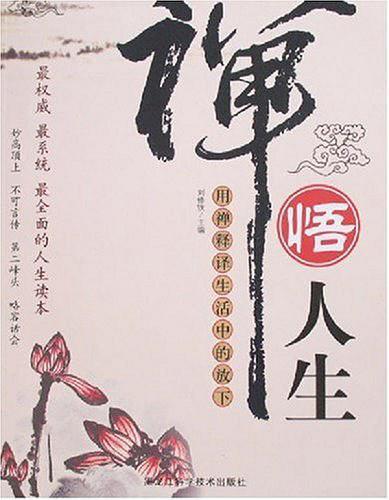 禅
悟
人生
刘修铁/主编
用禅释译生活中的放下
最权威 最系统 最全面的人生读本
妙高顶上 不可言传 第二峰头 略容话会
黑龙江科学技术出版社